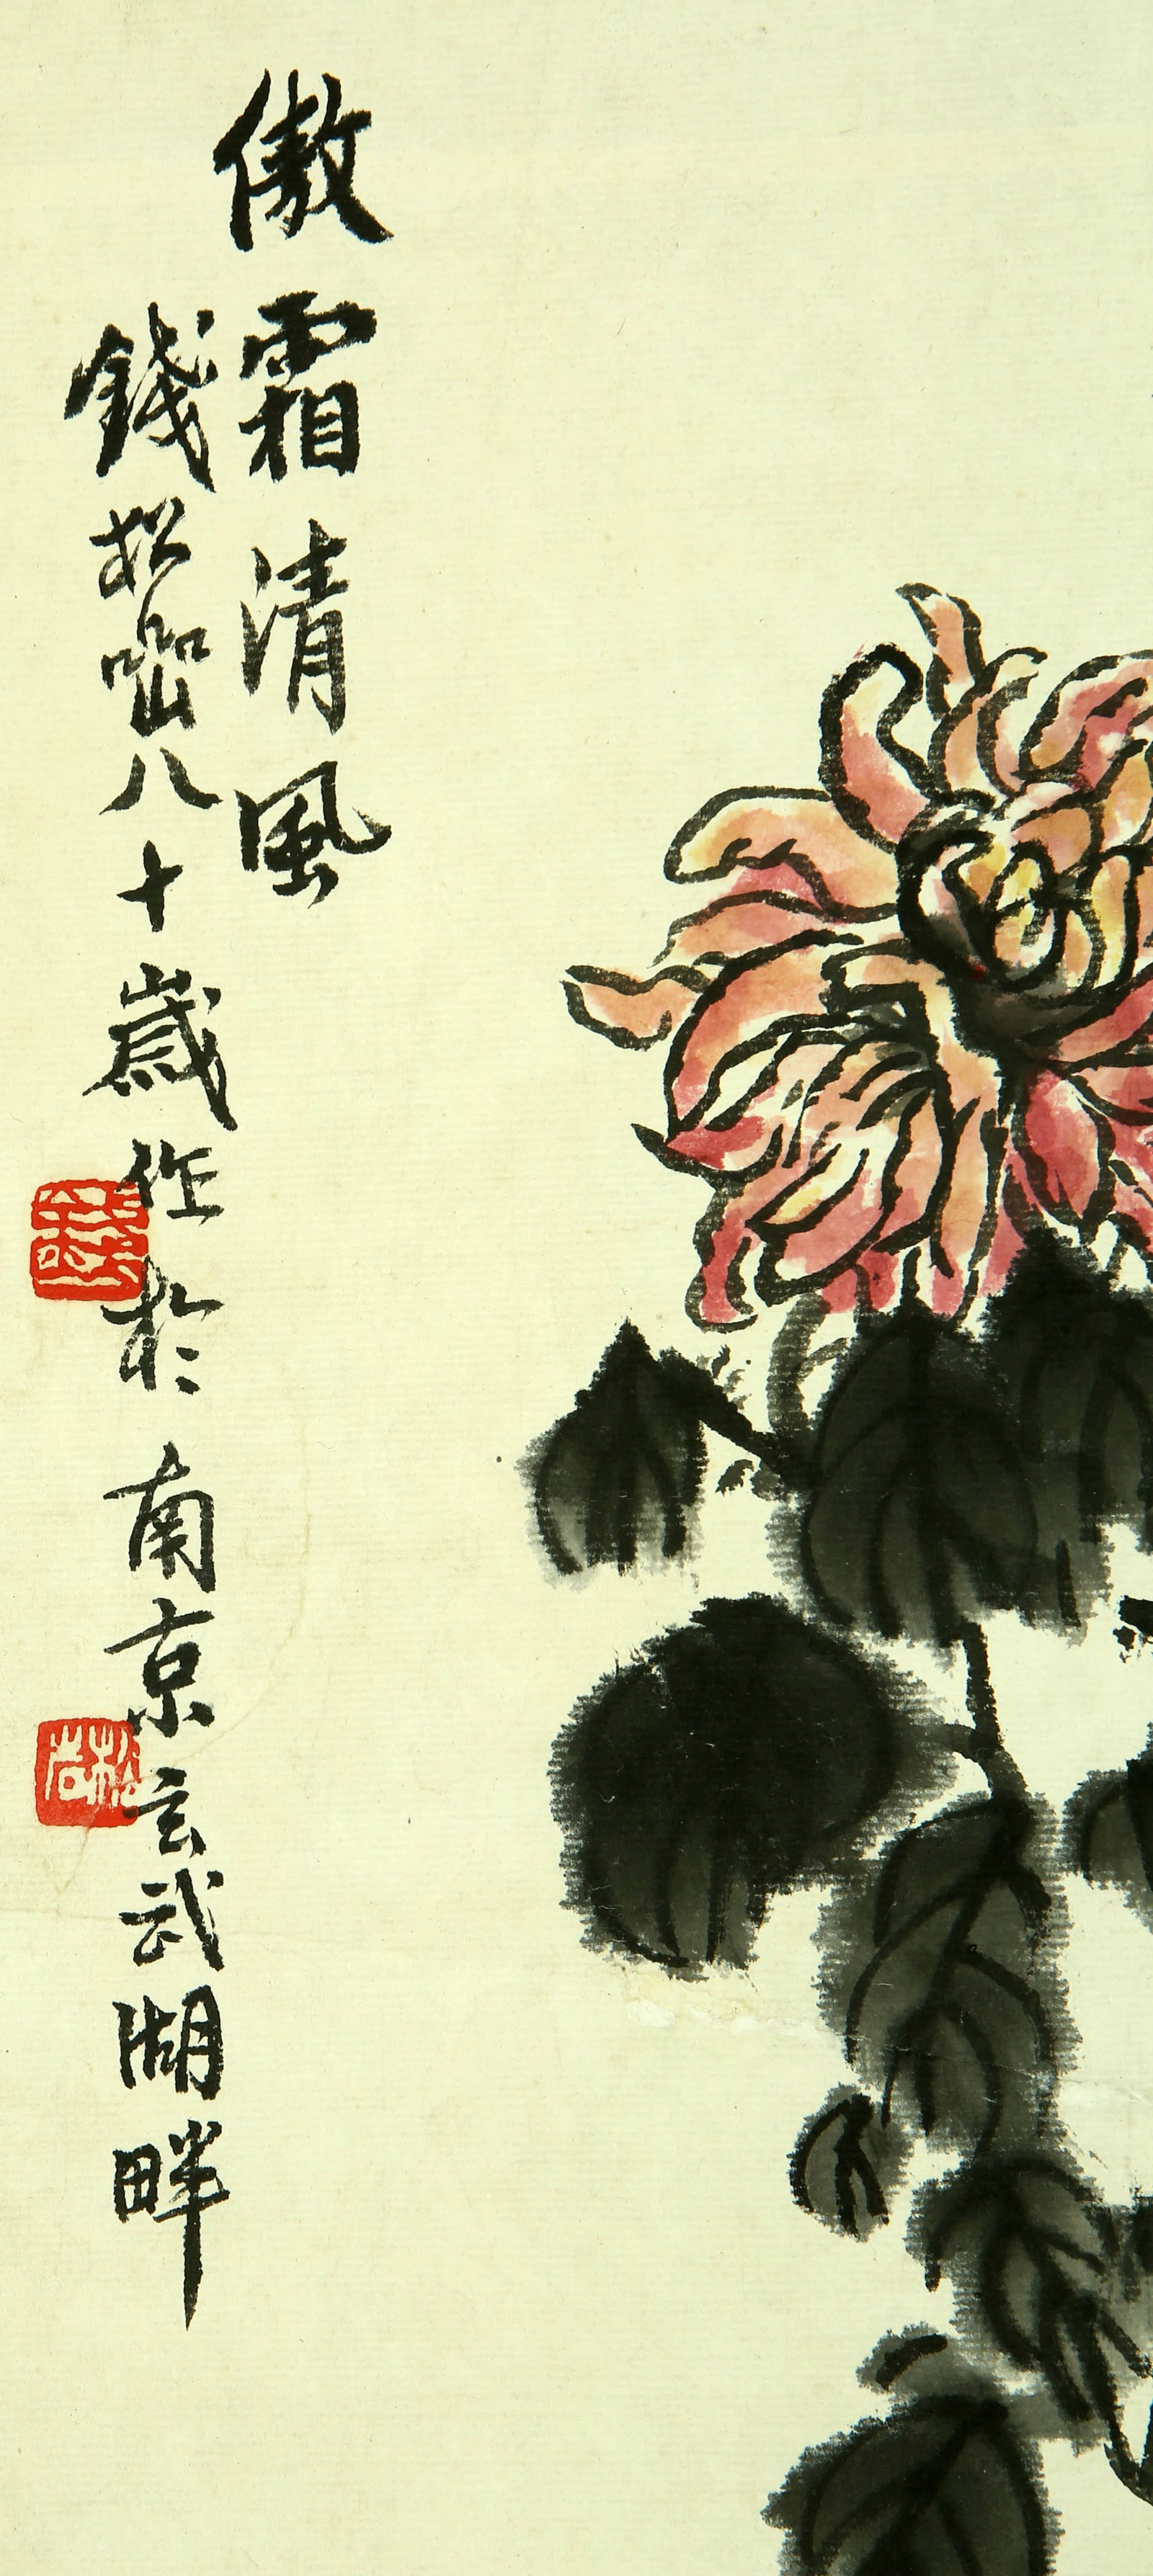 傲霜清風
錢松嵒八十歲作於南京玄武湖畔
錢
松嵒